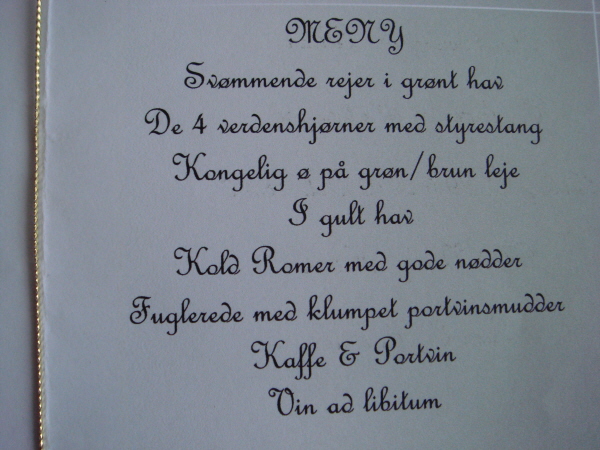 MENY
Svømmende rejer i grønt hav
De 4 verdenshjørner med styrestang
Kongelig ø på grøn/brun leje
I gult hav
Kold Romer med gode nødder
Fuglerede med klumpet portvinsmudder
Kaffe & Portvin
Vin ad libitum